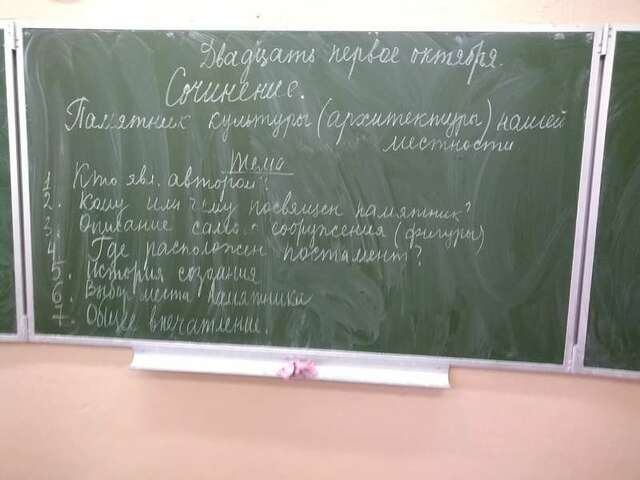 Двадцать первое октября.
Сочинение.
Памятник культуры (архитектуры) нашей
местности
тема
1. Кто явл. автором?
2. Кому или чему посвящен памятник?
3. Описание сооружения (фигуры)
4. Где расположен постамент?
5. История создания
6. Выбор места
7. Общее впечатление.